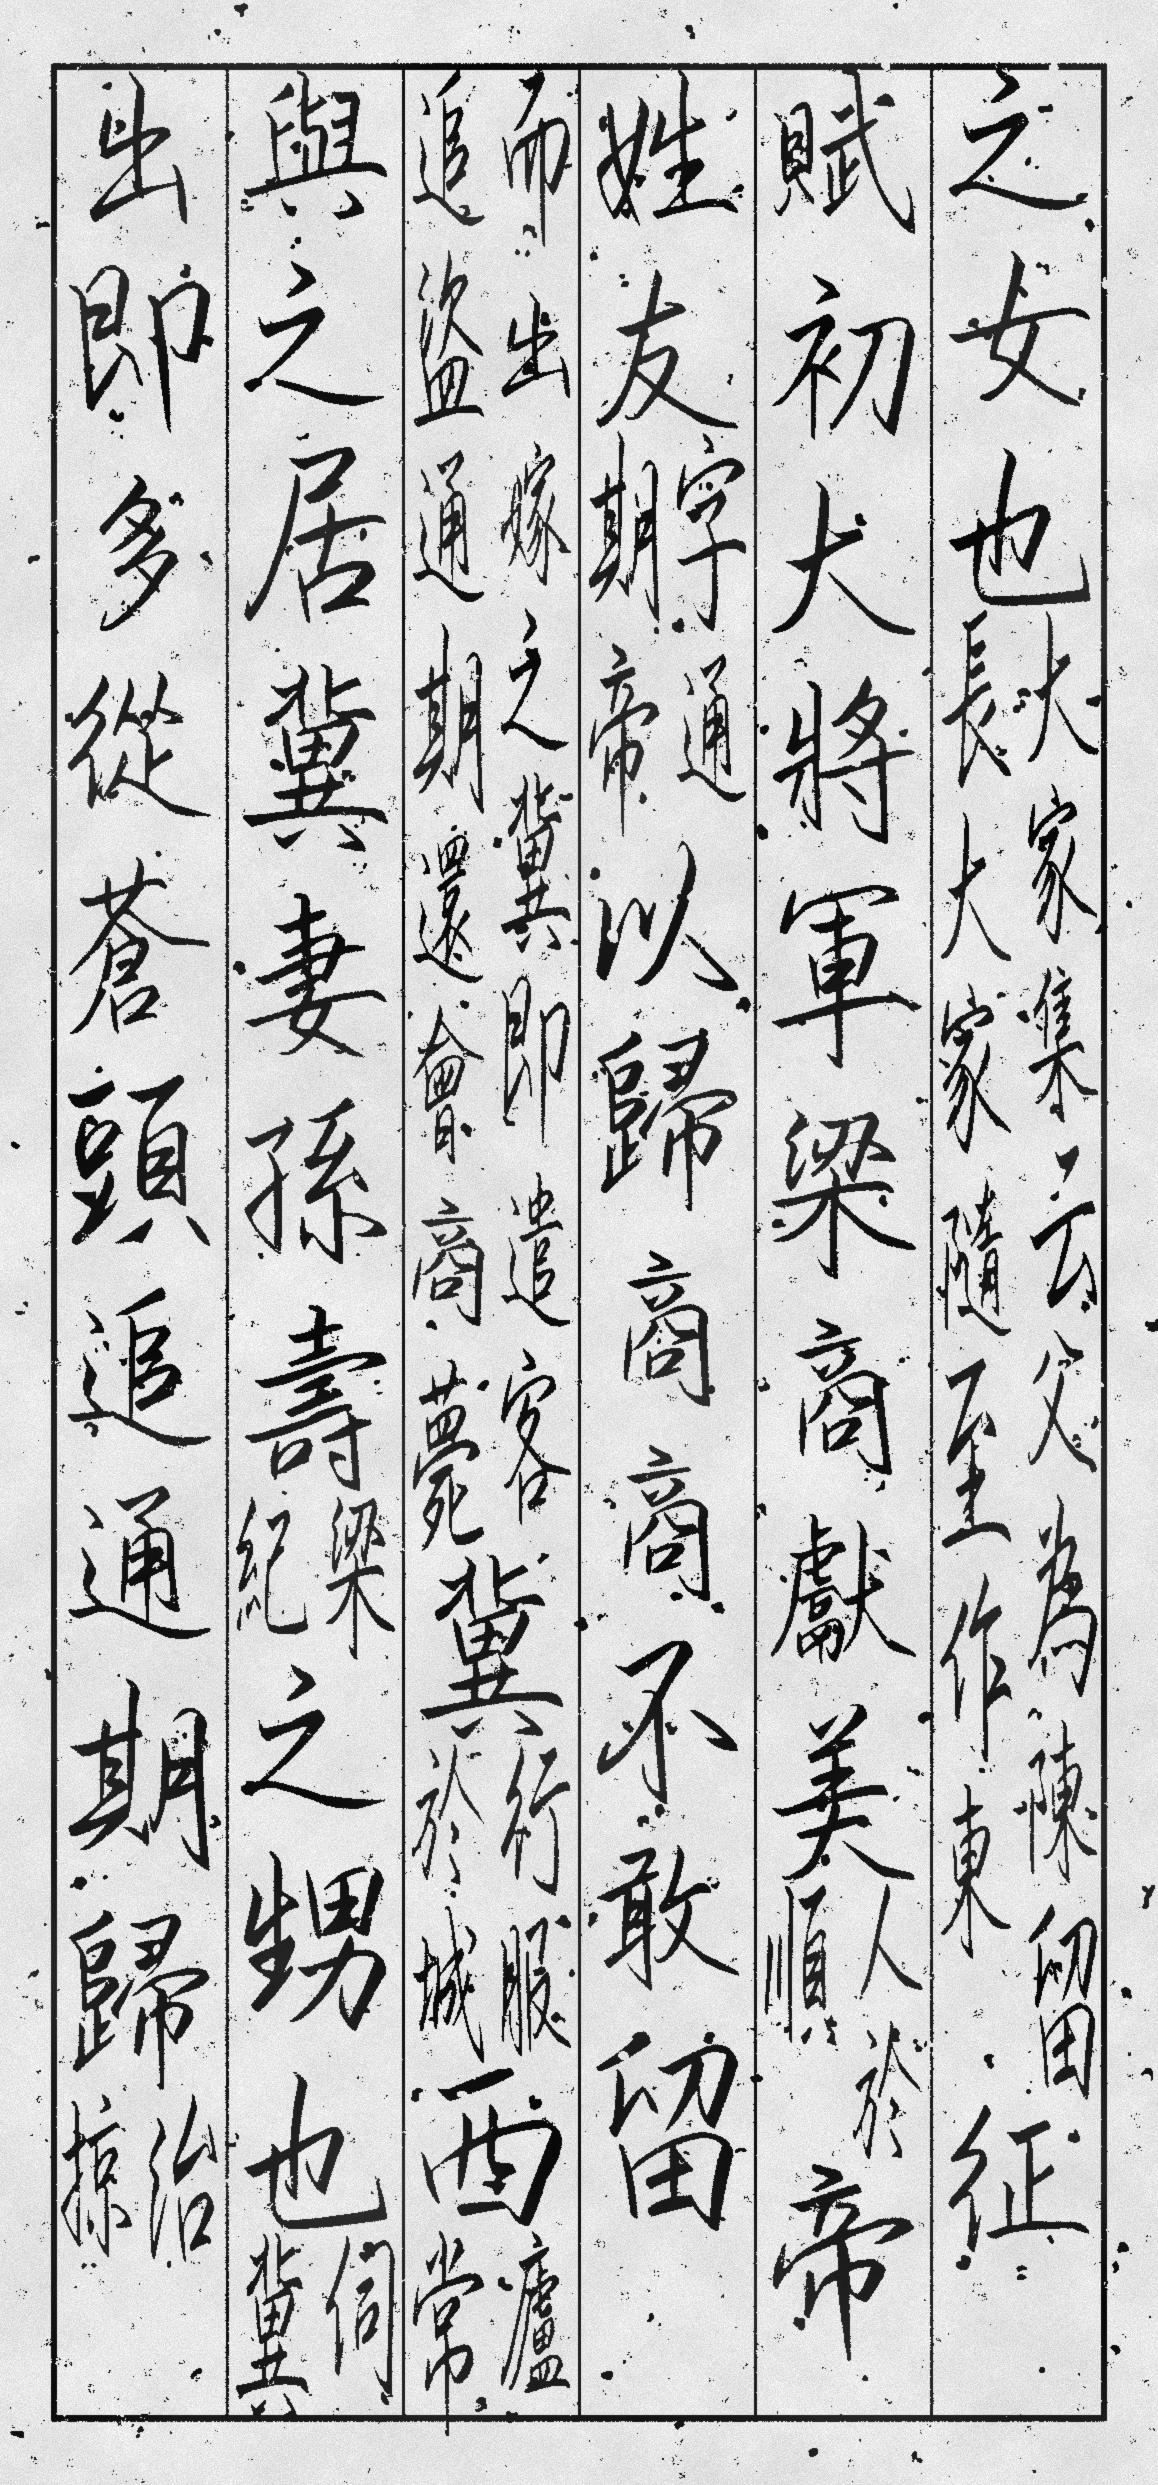 之女也大家集云父為陳留長大家隨至作東征
賦初大將軍梁商獻美人於順帝
姓友字通期帝以歸商商不敢留
而出嫁之冀即遣客追盜通期還會商薨冀行服於城西廬常
與之居冀妻孫壽梁紀之甥也伺冀
出即多從蒼頭追通期歸治掠